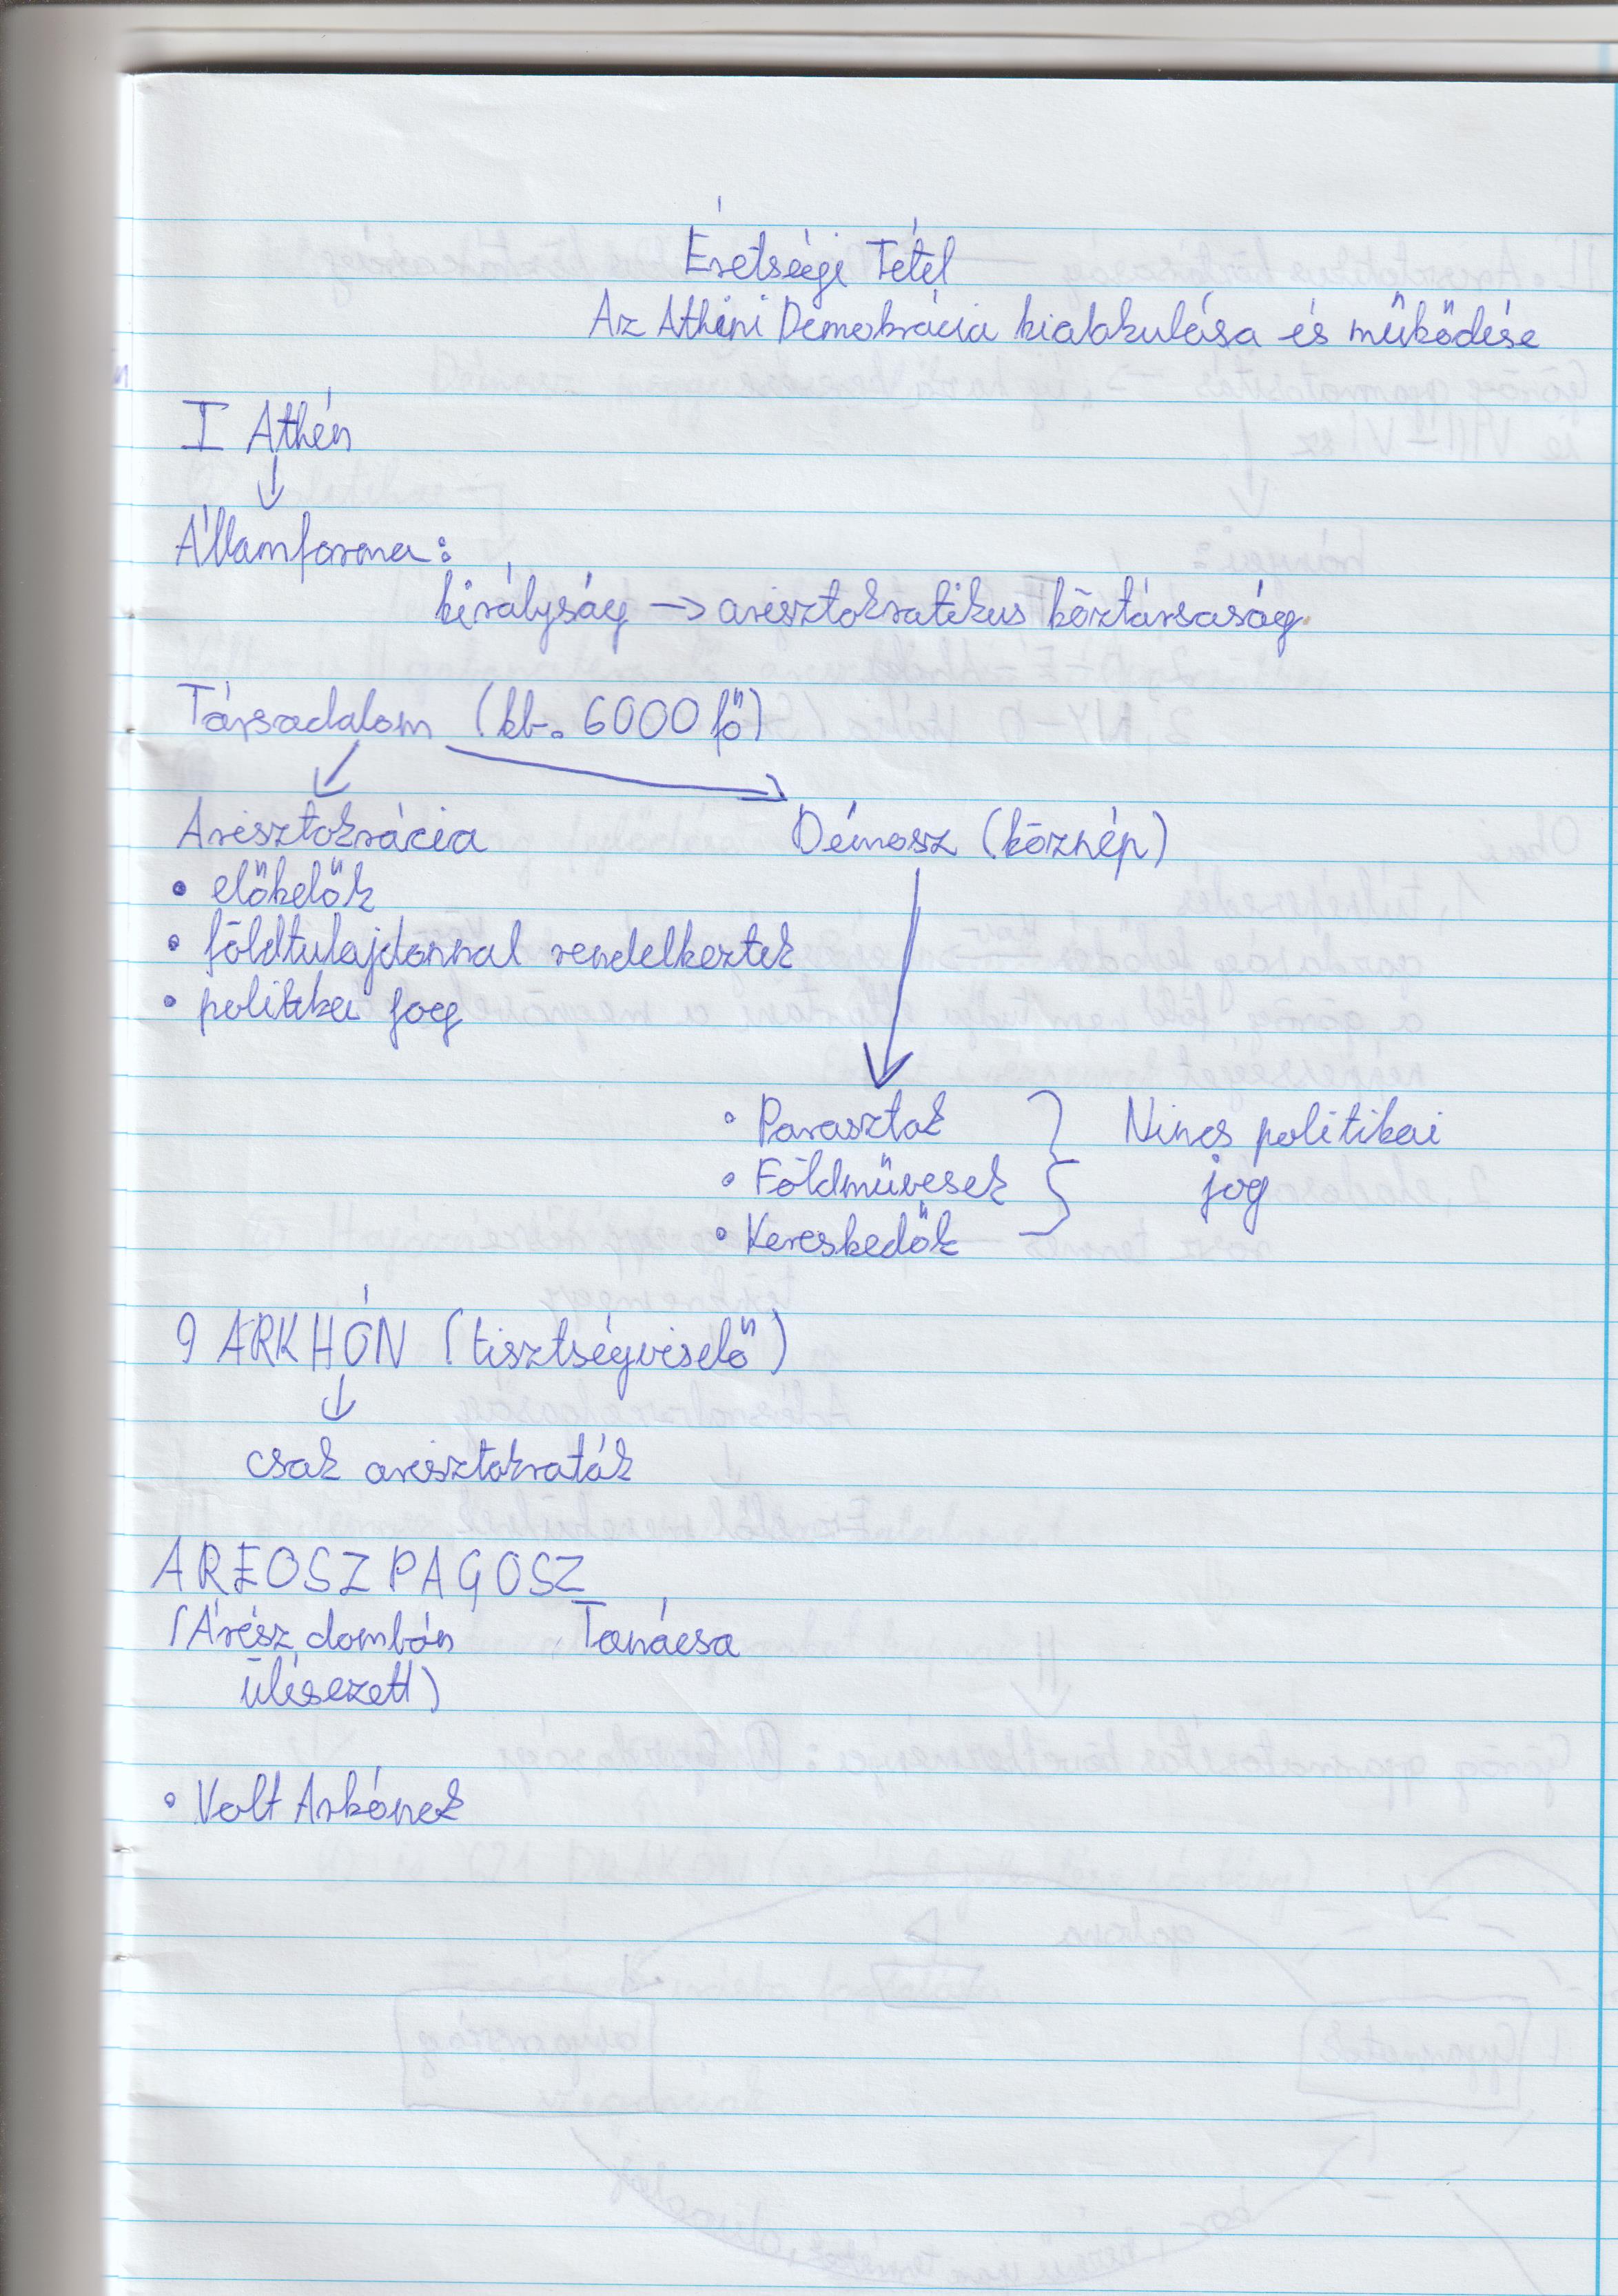 Éretségi Tétel
Az Athéni Demokrácia kialakulása és működése
I Athén
↓
Államforma:
királyság → arisztokratikus köztársaság
Társadalom (kb. 6000 fő)
Arisztokrácia
Démosz (köznép)
• előkelők
• földtulajdonnal rendelkeztek
• politikai jog
• Parasztok
• Földművesek
• Kereskedők
Nincs politikai
jog
9 ARKHÓN (tisztségviselő)
↓
csak arisztokraták
AREOSZPAGOSZ
(Árész dombán Tanácsa
ülésezett)
• Volt Arkónok